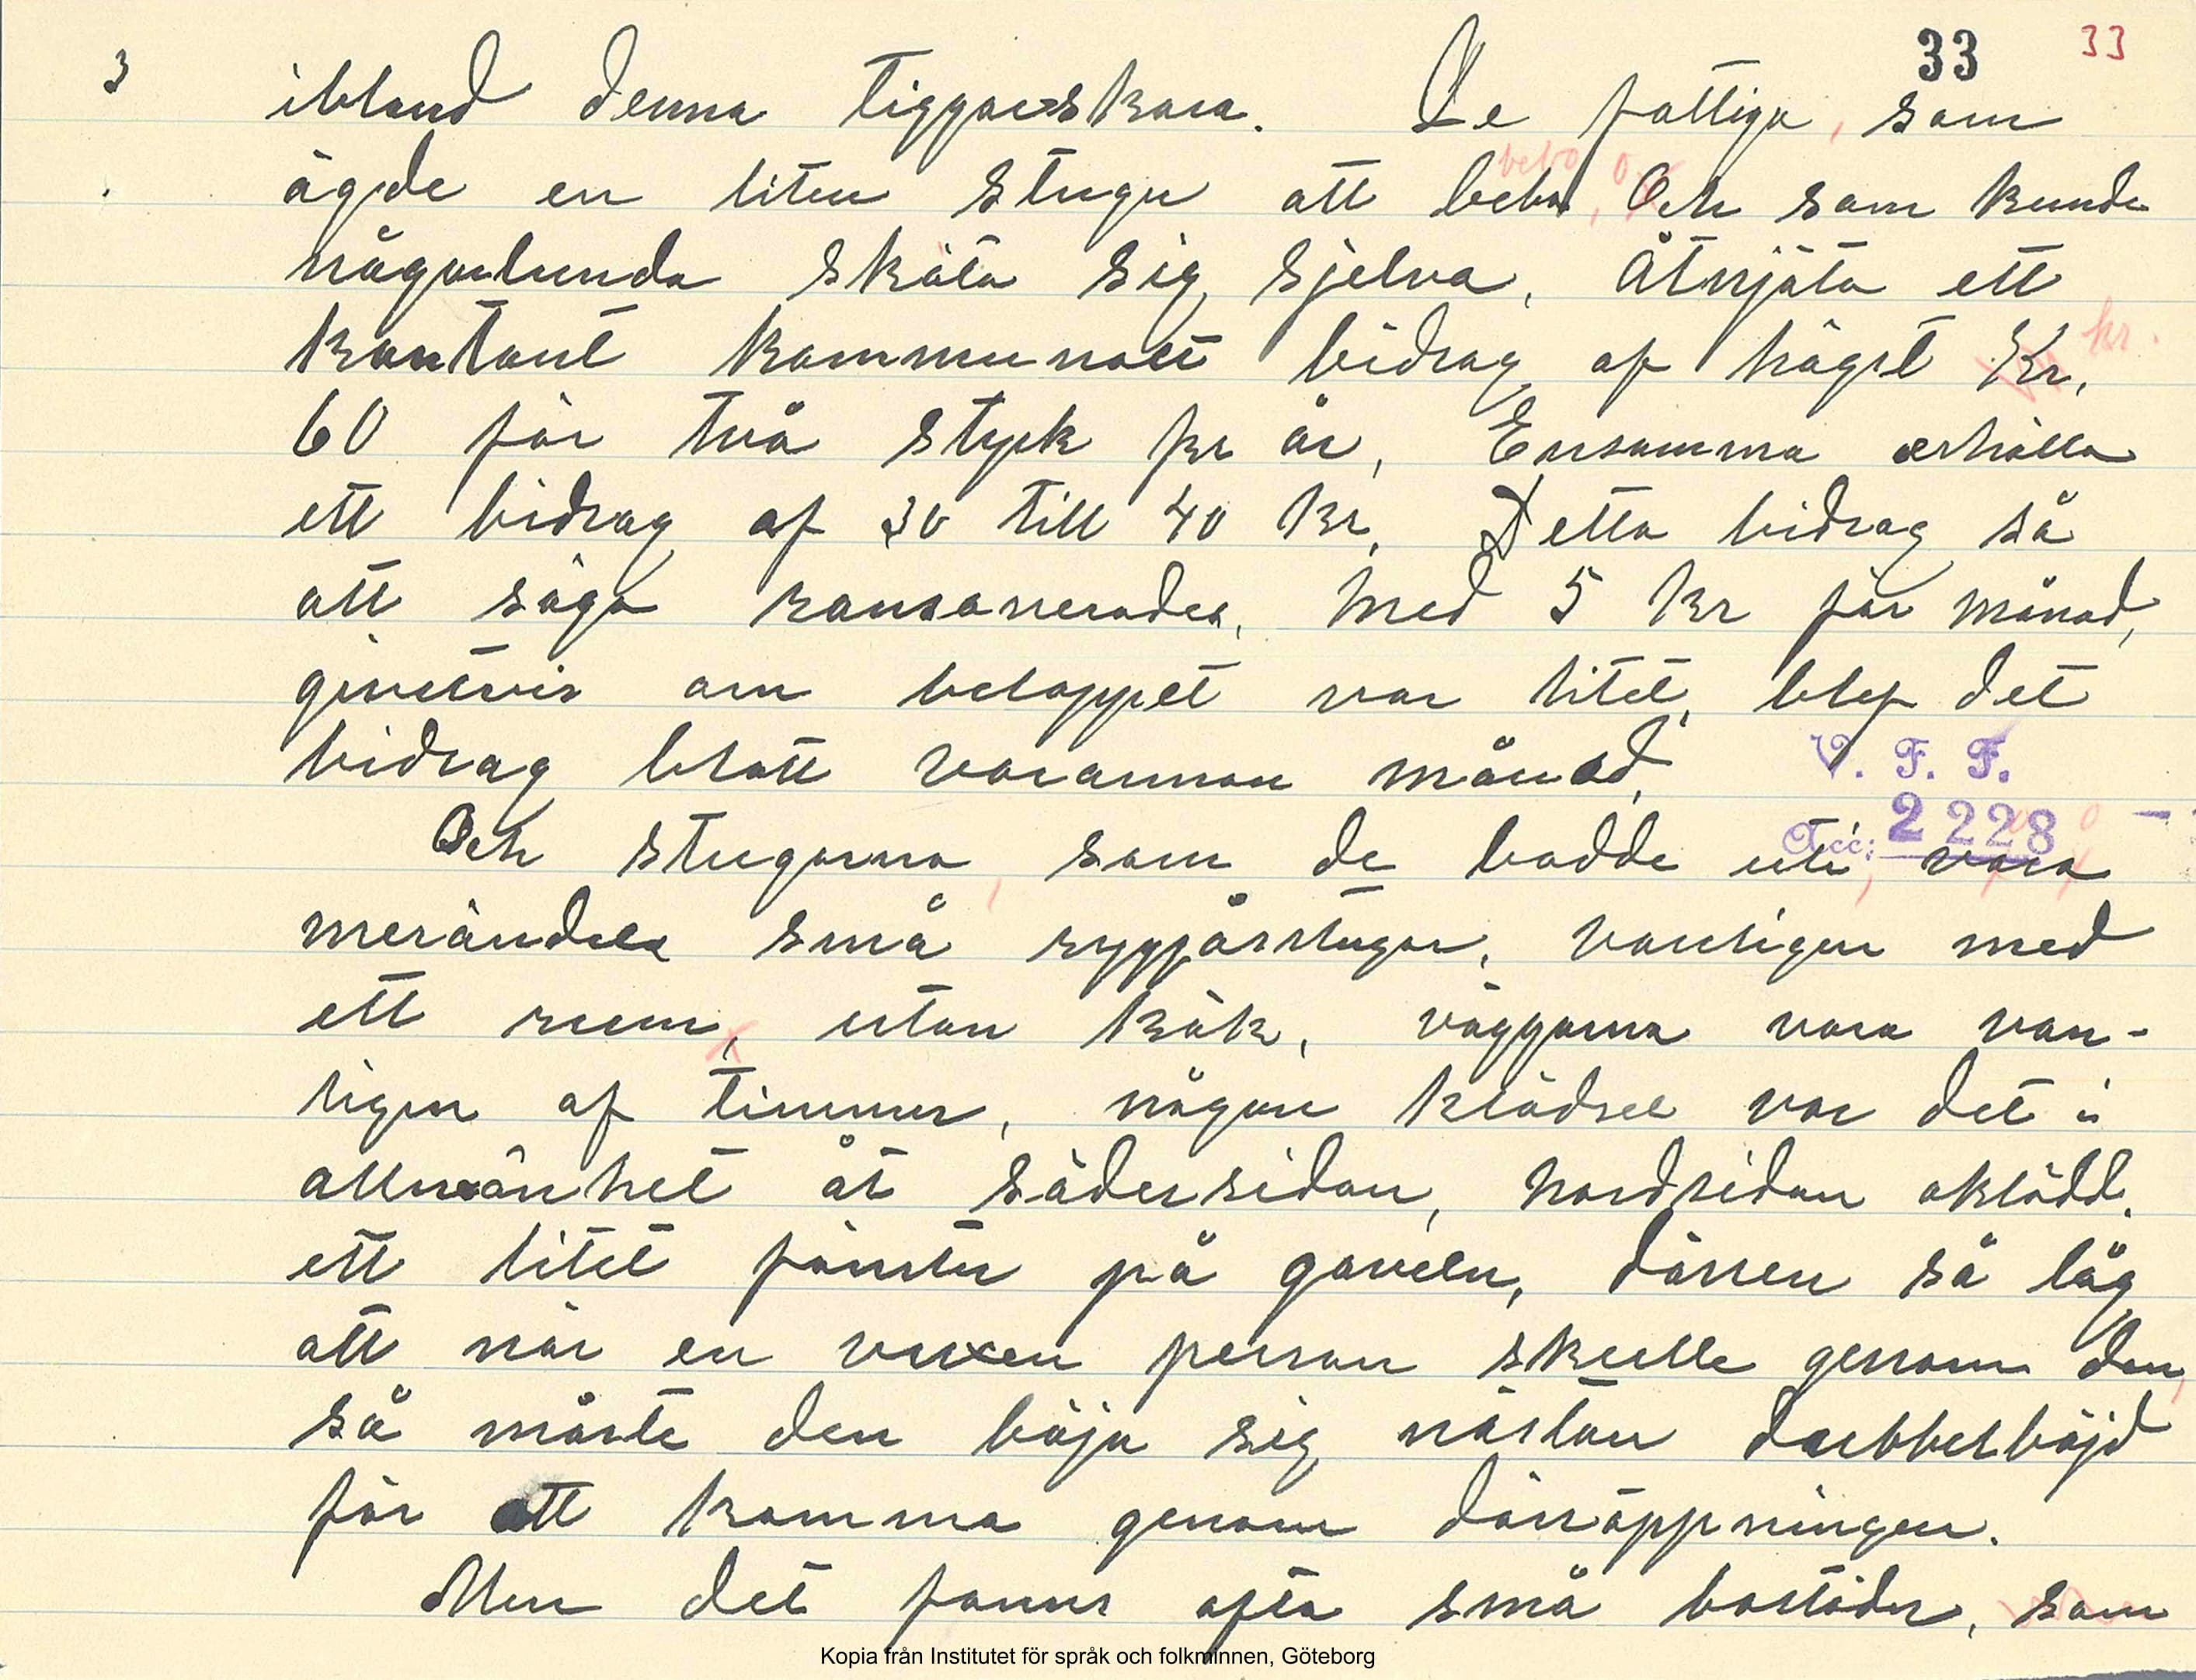 33 33
3 ibland denna tiggareskara. De fattiga, som
bebo o
ägde en liten stuga att bebo, Och som kunde
någorlunda sköta sig sjelva, Åtnjöto ett
kontant kommunalt bidrag af högst Kr. kr.
60 för två styck pr år, Ensamma erhålla
ett bidrag af 30 till 40 kr, Detta bidrag så
att säga ransonerades, med 5 kr för månad,
givetvis om beloppet var litet, blef det
bidrag blott varannan månad,
V. F. F.
Acc: 2228
Och stugorna, som de bodde uti, vara
merändels små ryggåsstugor, vanligen med
ett rum, utan kök, väggarna vara van-
ligen af timmer, någon klädsel var det i
allmänhet åt södersidan, nordsidan oklädd,
ett litet fönster på gaveln, dörren så låg
att när en vuxen person skulle genom den,
så måste den böja sig nästan dubbelböjd
för att komma genom dörröppningen.
Men det fanns ofta små bostäder, som
Kopia från Institutet för språk och folkminnen, Göteborg